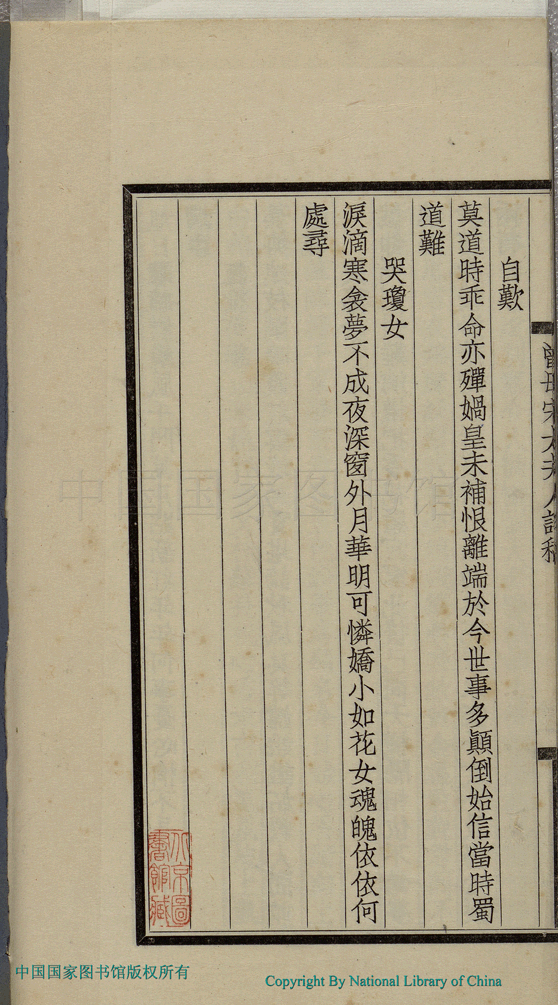 自歎
莫道時乖命亦殫媧皇未補恨離端於今世事多顛倒始信當時蜀
道難
哭瓊女
淚滴寒衾夢不成夜深窗外月華明可憐嬌小如花女魂魄依依何
處尋
北京圖
書館藏
中国国家图书馆
中国国家图书馆版权所有
Copyright By National Library of China